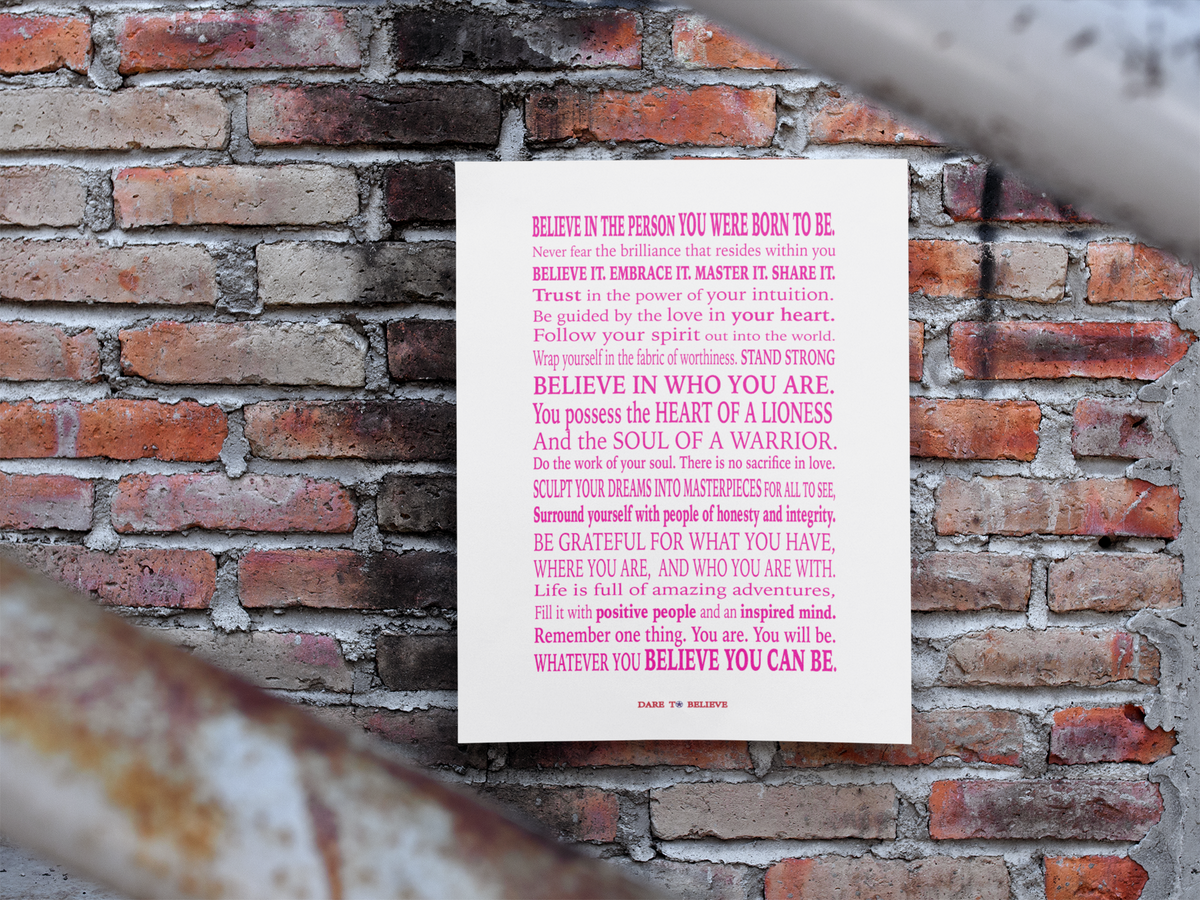 BELIEVE IN THE PERSON YOU WERE BORN TO BE.
Never fear the brilliance that resides within you
BELIEVE IT. EMBRACE IT. MASTER IT. SHARE IT.
Trust in the power of your intuition.
Be guided by the love in your heart.
Follow your spirit out into the world.
Wrap yourself in the fabric of worthiness. STAND STRONG
BELIEVE IN WHO YOU ARE.
You possess the HEART OF A LIONESS
And the SOUL OF A WARRIOR.
Do the work of your soul. There is no sacrifice in love.
SCULPT YOUR DREAMS INTO MASTERPIECES FOR ALL TO SEE,
Surround yourself with people of honesty and integrity.
BE GRATEFUL FOR WHAT YOU HAVE,
WHERE YOU ARE, AND WHO YOU ARE WITH.
Life is full of amazing adventures,
Fill it with positive people and an inspired mind.
Remember one thing. You are. You will be.
WHATEVER YOU BELIEVE YOU CAN BE.
DARE TO BELIEVE